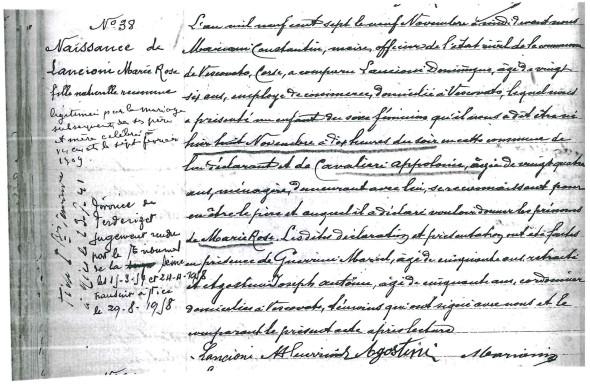 N° 38
Naissance de
Lancioni Marie Rose
fille naturelle reconnue
légitimée par le mariage
subséquent de ses père
et mère célébré
le sept février
1909
Divorcée de
jugement rendu
par le tribunal
de la Seine
les
transcrit à Nice
le 29-8-1958
L'an mil neuf cent sept le neuf Novembre à midi devant nous
Mariani Constantin, maire, officier de l'état civil de la commune
de Vescovato, Corse, a comparu Lancioni Dominique, âgé de vingt
six ans, employé de commerce, domicilié à Vescovato, lequel nous
a présenté un enfant de sexe féminin qu'il nous a dit être né
hier huit Novembre à dix heures du soir en cette commune de
lui déclarant et de Cavalieri Appolonie, âgée de vingt quatre
ans, ménagère, demeurant avec lui, se reconnaissant pour
en être le père et auquel il a déclaré vouloir donner les prénoms
de Marie Rose. Lesdites déclaration et présentation ont été faites
en présence de Guerrini Martin, âgé de cinquante ans retraité
et Agostini Joseph Antoine, âgé de cinquante ans, cordonnier
domiciliés à Vescovato, témoins qui ont signé avec nous et le
comparant le présent acte après lecture
Lancioni M Guerrini Agostini Mariani